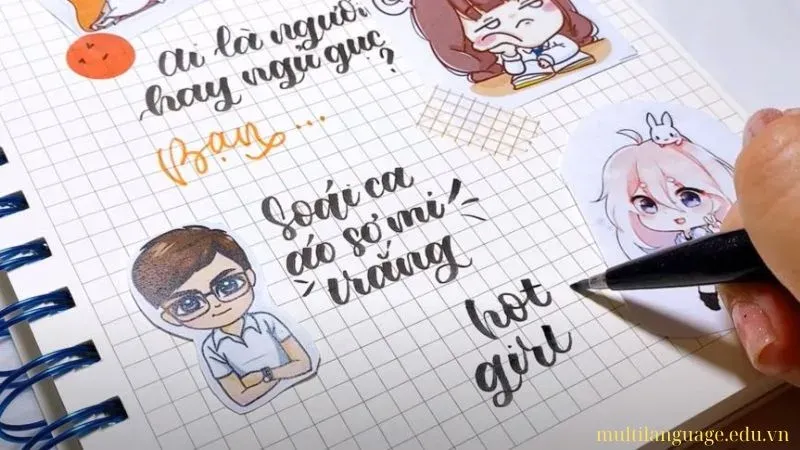 ai là người
hay ngủ gục
?
Bạn...
Soái ca
áo sơ mi
trắng
hot
girl
multilanguage.edu.vn